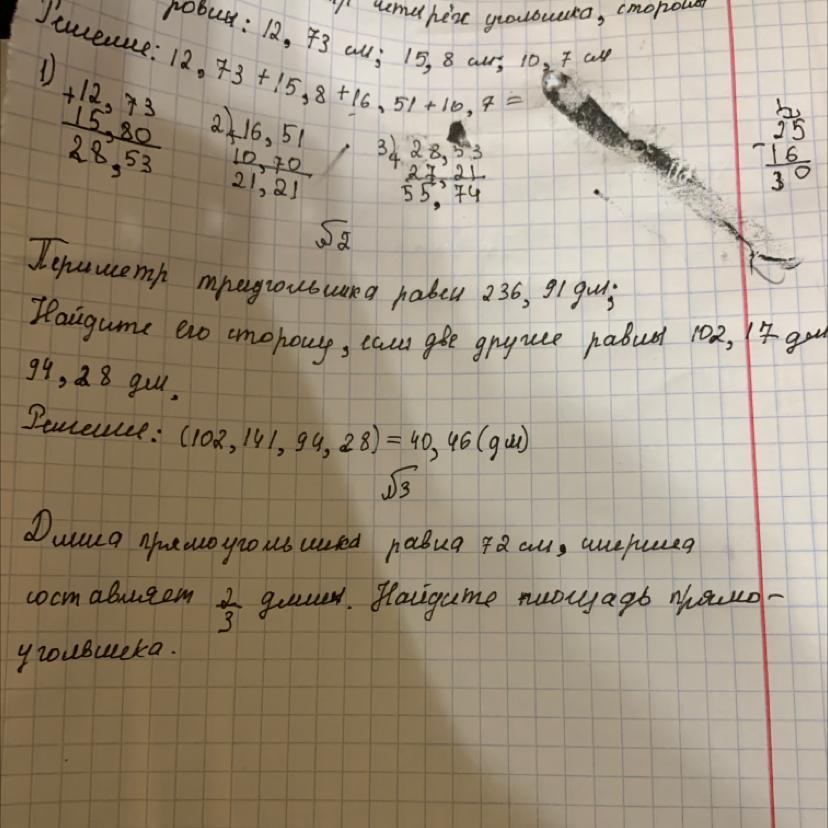 четырёх угольника, стороны
равны: 12, 73 см; 15, 8 см; 10, 7 см
Решение: 12, 73 + 15, 8 + 16, 51 + 10, 7 =
1) +12, 73
15, 80
28, 53
2) +16, 51
10, 70
21, 21
3) + 28, 53
27, 21
55, 74
25
- 16
30
№2
Периметр треугольника равен 236, 91 дм;
Найдите его сторону, если две другие равны 102, 17 дм
94, 28 дм.
Решение: (102, 141, 94, 28) = 40, 46 (дм)
№3
Длина прямоугольника равна 72 см, ширина
составляет 2/3 длины. Найдите площадь прямо-
угольника.